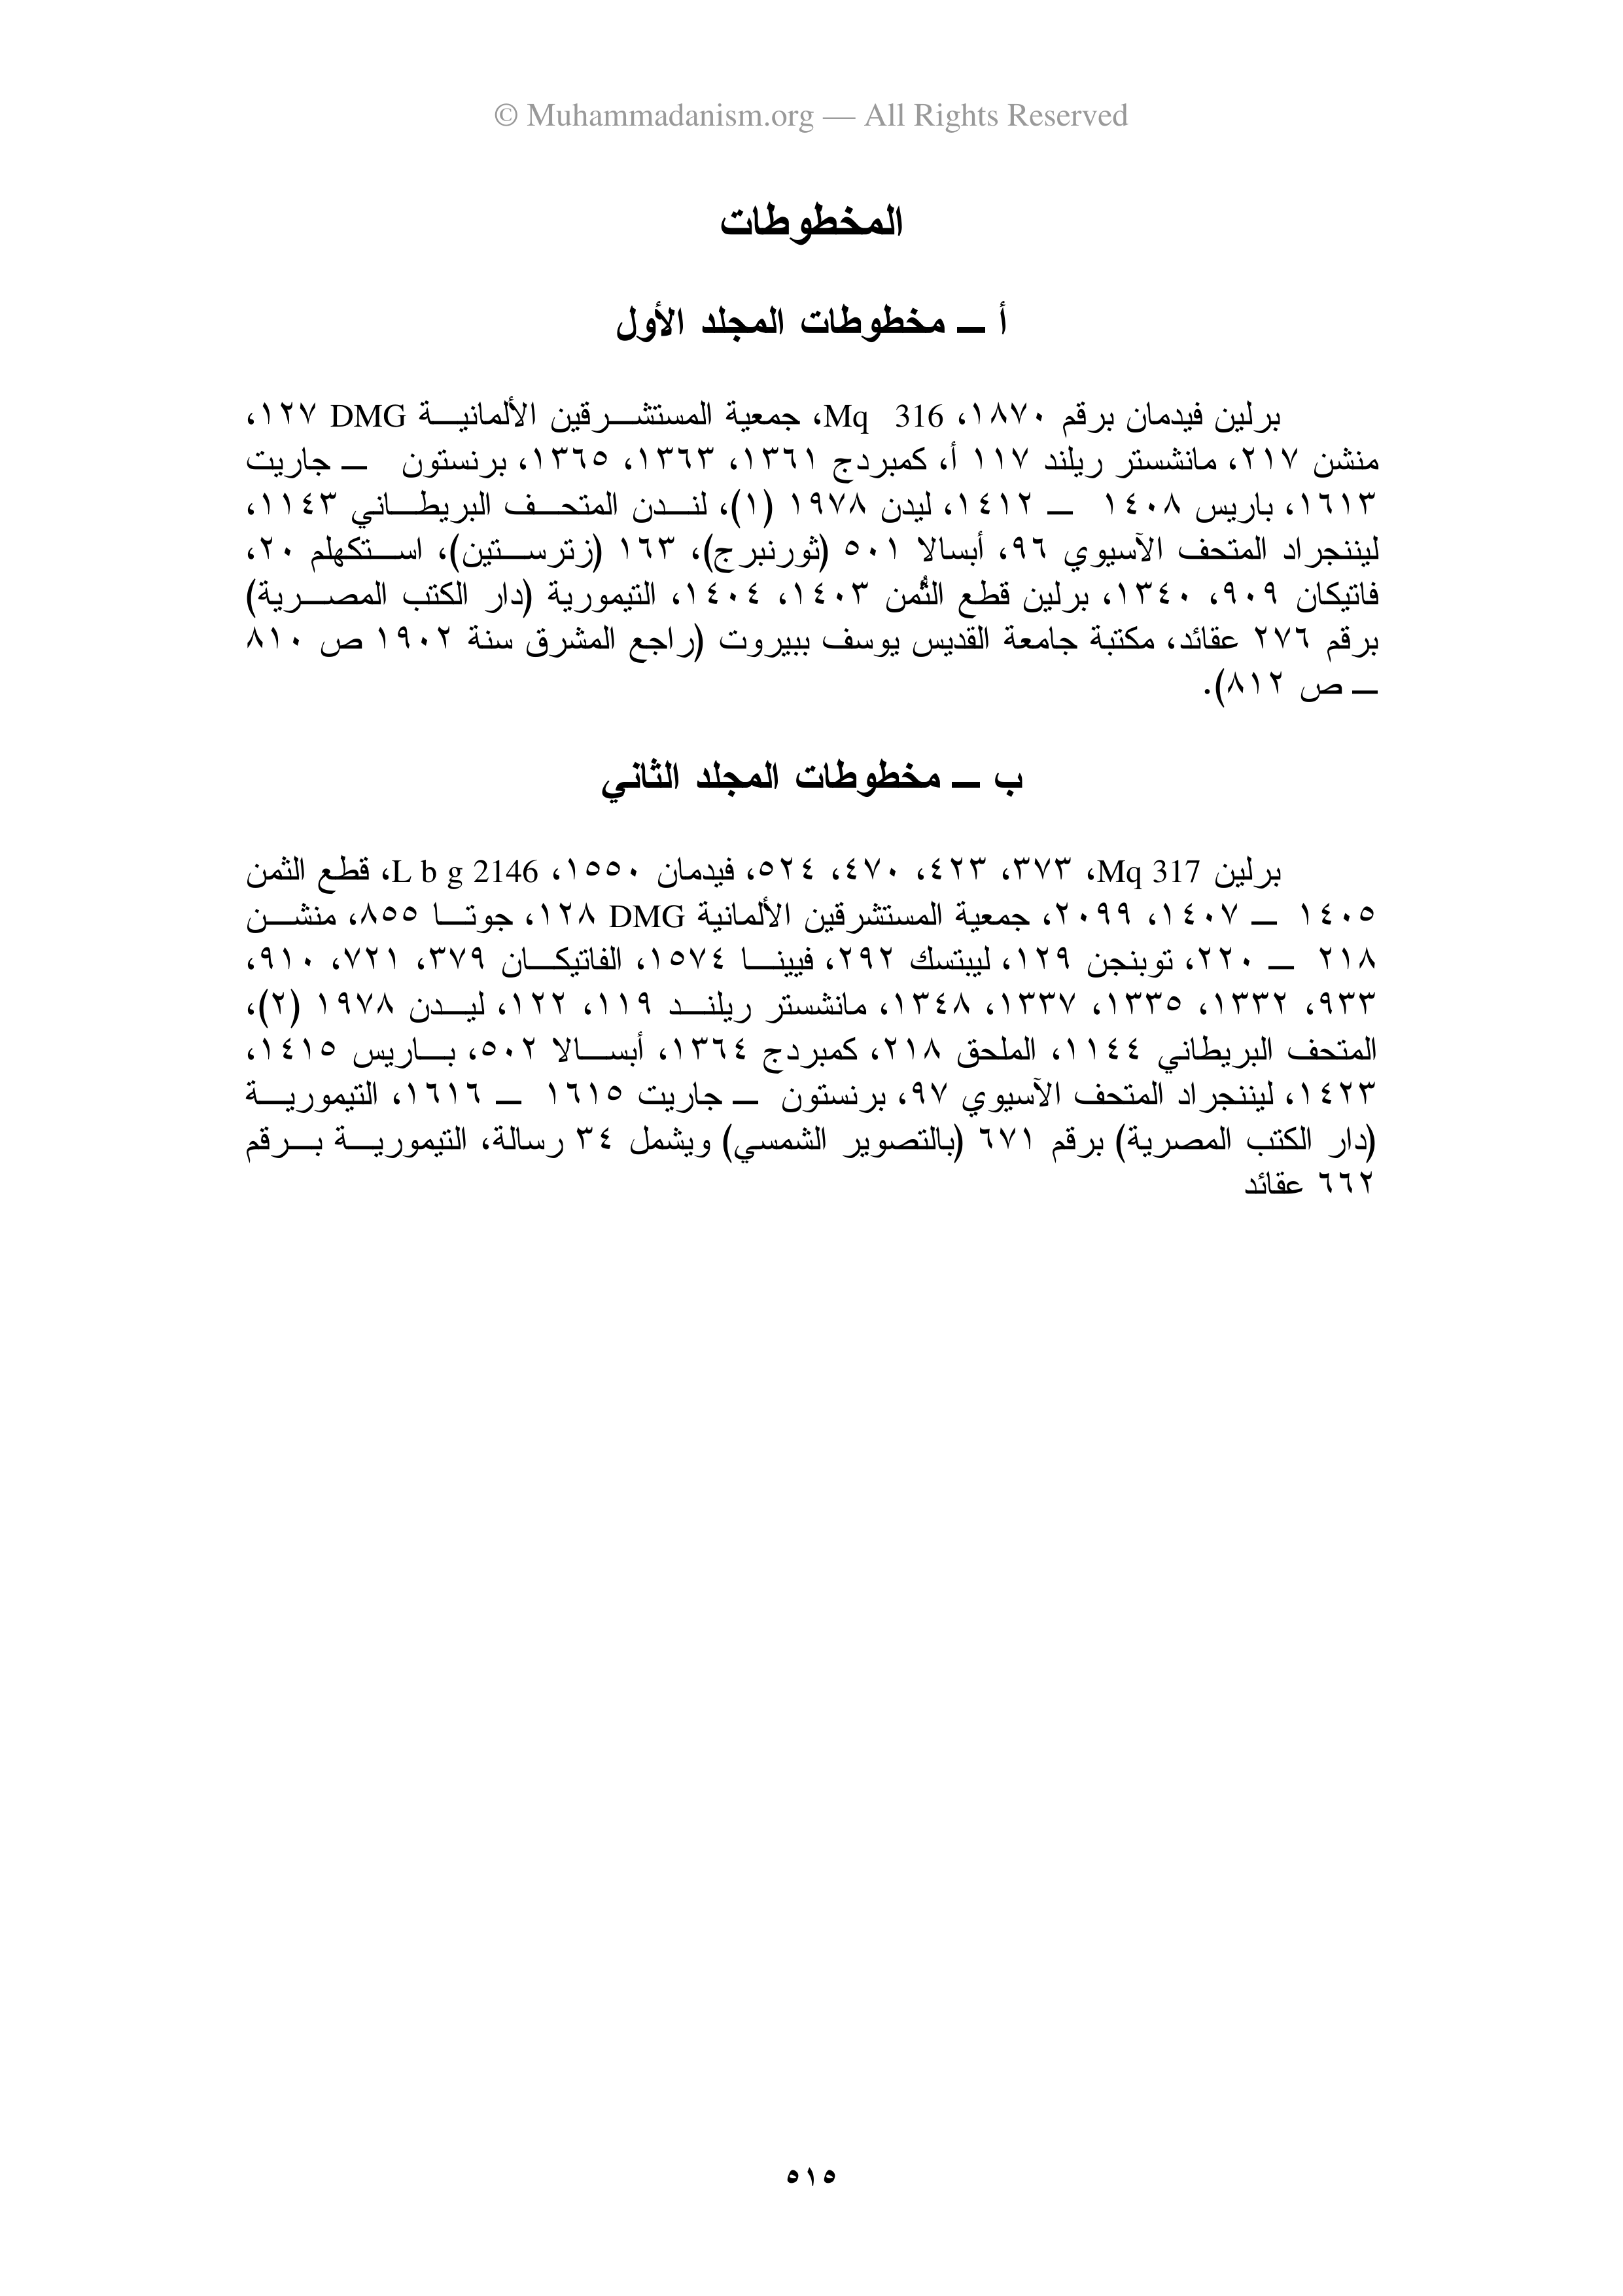 © Muhammadanism.org — All Rights Reserved
المخطوطات
أ ــ مخطوطات المجلد الأول
برلين فيدمان برقم ١٨٧٠، Mq 316، جمعية المستشرقين الألمانية DMG ١٢٧،
منشن ٢١٧، مانشستر ريلند ١١٧ أ، كمبردج ١٣٦١، ١٣٦٣، ١٣٦٥، برنستون ــ جاريت
١٦١٣، باريس ١٤٠٨ ــ ١٤١٢، ليدن ١٩٧٨ (١)، لندن المتحف البريطاني ١١٤٣،
ليننجراد المتحف الآسيوي ٩٦، أبسالا ٥٠١ (ثورنبرج)، ١٦٣ (زترستين)، استكهلم ٢٠،
فاتيكان ٩٠٩، ١٣٤٠، برلين قطع الثُمن ١٤٠٣، ١٤٠٤، التيمورية (دار الكتب المصرية)
برقم ٢٧٦ عقائد، مكتبة جامعة القديس يوسف ببيروت (راجع المشرق سنة ١٩٠٢ ص ٨١٠
ــ ص ٨١٢).
ب ــ مخطوطات المجلد الثاني
برلين Mq 317، ٣٧٣، ٤٢٣، ٤٧٠، ٥٢٤، فيدمان ١٥٥٠، L b g 2146، قطع الثمن
١٤٠٥ ــ ١٤٠٧، ٢٠٩٩، جمعية المستشرقين الألمانية DMG ١٢٨، جوتا ٨٥٥، منشن
٢١٨ ــ ٢٢٠، توبنجن ١٢٩، ليبتسك ٢٩٢، فيينا ١٥٧٤، الفاتيكان ٣٧٩، ٧٢١، ٩١٠،
٩٣٣، ١٣٣٢، ١٣٣٥، ١٣٣٧، ١٣٤٨، مانشستر ريلند ١١٩، ١٢٢، ليدن ١٩٧٨ (٢)،
المتحف البريطاني ١١٤٤، الملحق ٢١٨، كمبردج ١٣٦٤، أبسالا ٥٠٢، باريس ١٤١٥،
١٤٢٣، ليننجراد المتحف الآسيوي ٩٧، برنستون ــ جاريت ١٦١٥ ــ ١٦١٦، التيمورية
(دار الكتب المصرية) برقم ٦٧١ (بالتصوير الشمسي) ويشمل ٣٤ رسالة، التيمورية برقم
٦٦٢ عقائد
٥١٥